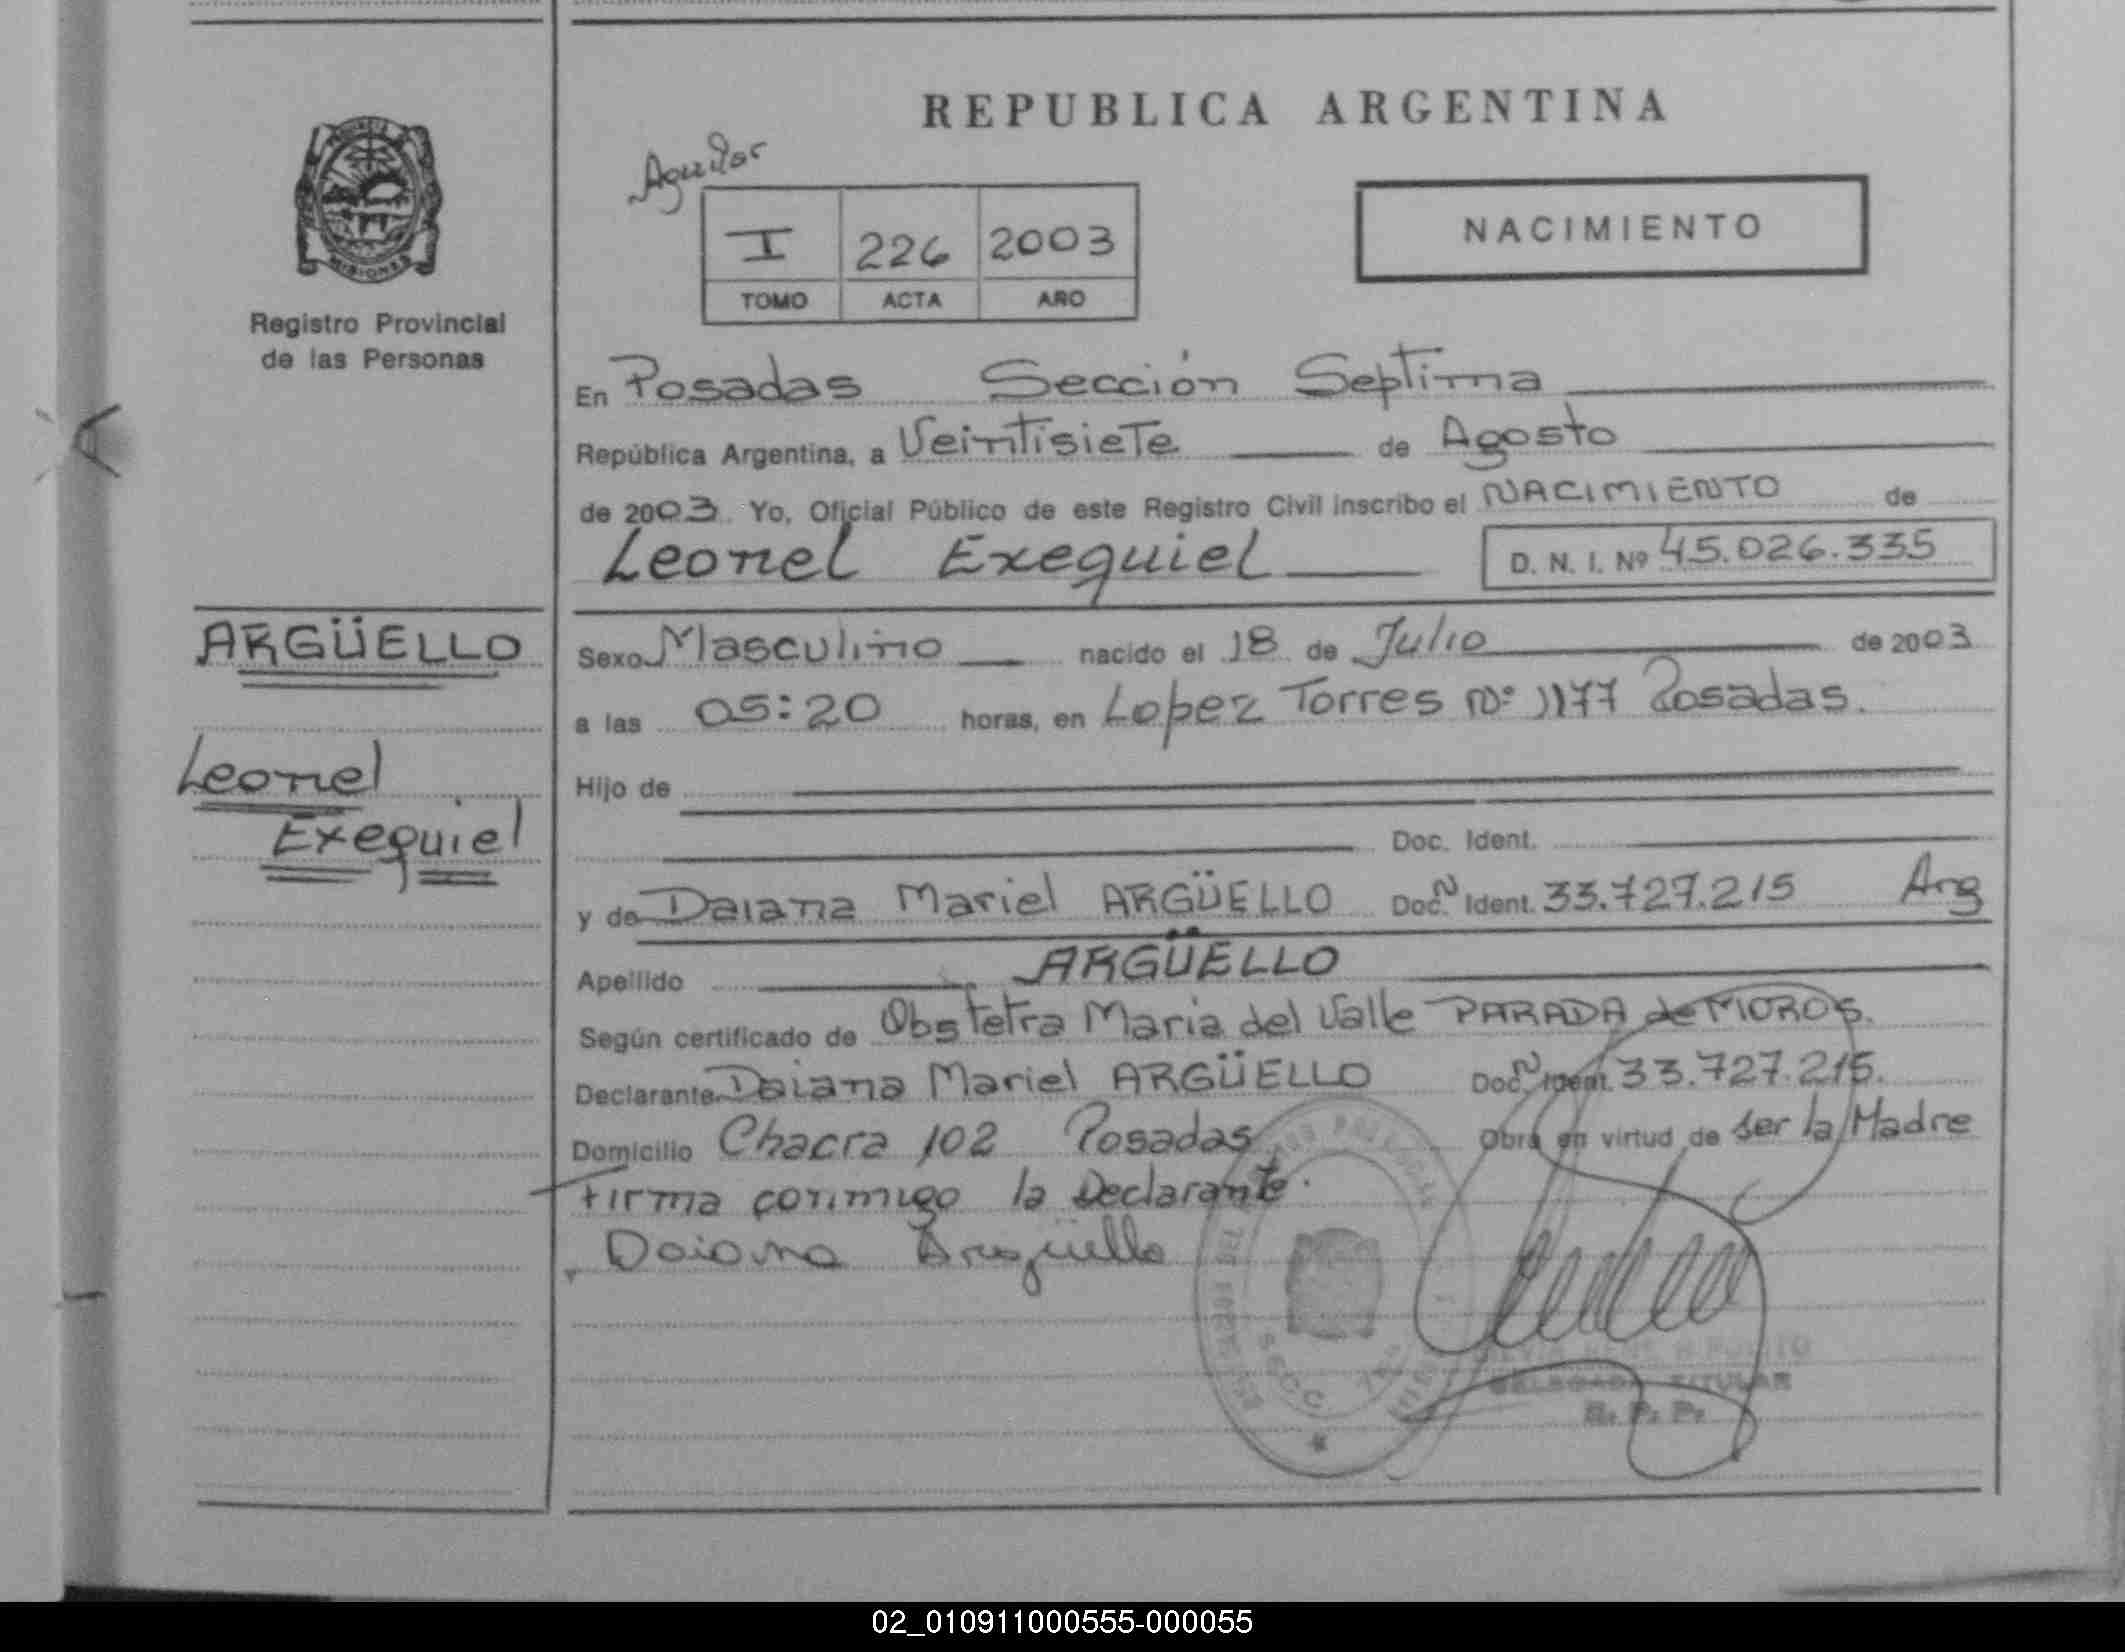 REPUBLICA ARGENTINA
Aguilar
I 226 2003
TOMO ACTA AÑO
NACIMIENTO
MISIONES
Registro Provincial
de las Personas
En Posadas Sección Septima
República Argentina, a Veintisiete de Agosto
de 2003 Yo, Oficial Público de este Registro Civil inscribo el NACIMIENTO de
Leonel Exequiel D. N. I. Nº 45.026.335
ARGÜELLO
Leonel
Exequiel
Sexo Masculino nacido el 18 de Julio de 2003
a las 05:20 horas, en Lopez Torres Nº 1177 Posadas.
Hijo de
Doc. Ident.
y de Daiana Mariel ARGÜELLO Doc. N Ident. 33.727.215 Arg
Apellido ARGÜELLO
Según certificado de Obstetra Maria del Valle PARADA de MOROS.
Declarante Daiana Mariel ARGÜELLO Doc. N Ident. 33.727.215.
Domicilio Chacra 102 Posadas Obra en virtud de ser la Madre
Firma conmigo la Declarante.
Daiana Argüello
SECC. 7
DELEGADA TITULAR
R. P. P.
02_010911000555-000055